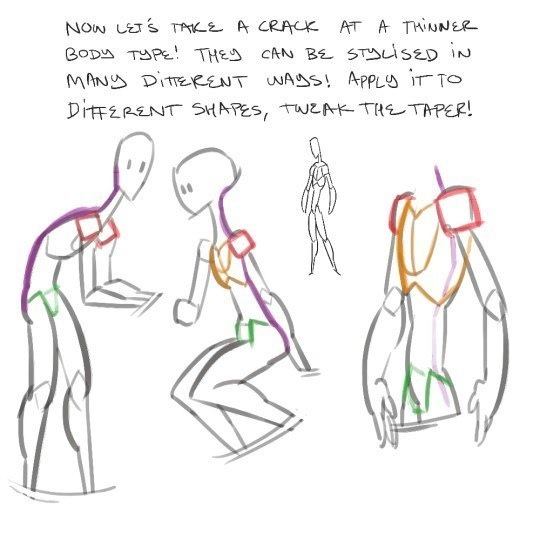 NOW LET'S TAKE A CRACK AT A THINNER
BODY TYPE! THEY CAN BE STYLISED IN
MANY DIFFERENT WAYS! APPLY IT TO
DIFFERENT SHAPES, TWEAK THE TAPER!